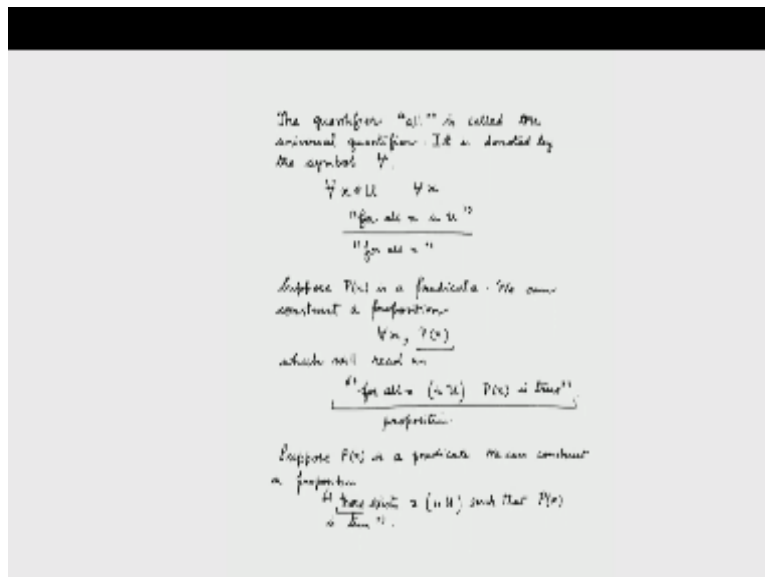 The quantifier "all" is called the
universal quantifier. It is denoted by
the symbol ∀.
∀ x ∈ U ∀ x
"for all x in U"
"for all x"
Suppose P(x) is a predicate. We can
construct a proposition
∀x, P(x)
which will read as
"for all x (in U) P(x) is true".
proposition
Suppose P(x) is a predicate We can construct
a proposition
"there exists x (in U) such that P(x)
is true".